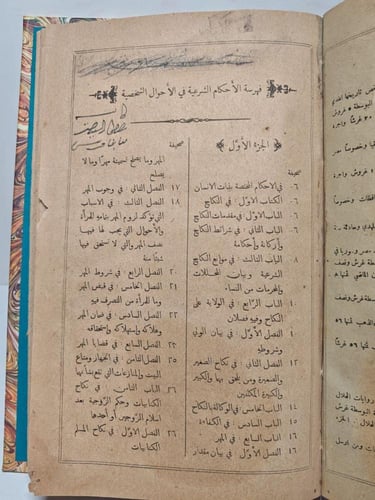 فهرسة الأحكام الشرعية في الأحوال الشخصية
الجزء الأوّل
صحيفة
٦ في الاحكام المختصة بذات الانسان
٦ الكتاب الاوّل: في النكاح
٦ الباب الاوّل: في مقدمات النكاح
٦ الباب الثاني: في شرائط النكاح
وأركانه وأحكامه
٨ الباب الثالث: في موانع النكاح
الشرعية وبيان المحللات
والمحرمات من النساء
١٠ الباب الرّابع: في الولاية على
النكاح وفيه فصلان
١٠ الفصل الأوّل: في بيان الولي
وشروطه
١٢ الفصل الثاني: في نكاح الصغير
والصغيرة ومن يلحق بهما والكبير
والكبيرة المكلفين
١٤ الباب الخامس: في الوكالة بالنكاح
١٥ الباب السادس: في الكفاءة
١٦ الباب السابع: في المهر
١٦ الفصل الأوّل: في بيان مقدار
صحيفة
المهر وما يصلح تسميته مهرًا وما لا
يصلح
١٧ الفصل الثاني: في وجوب المهر
١٨ الفصل الثالث: في الاسباب
التي تؤكد لزوم المهر بتمامه للمرأة
والأحوال التي يجب لها فيها
نصف المهر والتي لا تستحق فيها
شيئًا منه
٢٠ الفصل الرابع: في شروط المهر
٢١ الفصل الخامس: في قبض المهر
وما للمرأة من التصرف فيه
الفصل السادس: في ضمان المهر
وهلاكه واستهلاكه واستحقاقه
الفصل السابع: في قضايا المهر
٢٥ الفصل الثامن: في الجهاز ومتاع
البيت والمنازعات التي تقع بشأنهما
٢٦ الباب الثامن: في نكاح
الكتابيات وحكم الزوجية بعد
اسلام الزوجين أو أحدهما
٢٦ الفصل الاوّل: في نكاح المسلم
الكتابيات